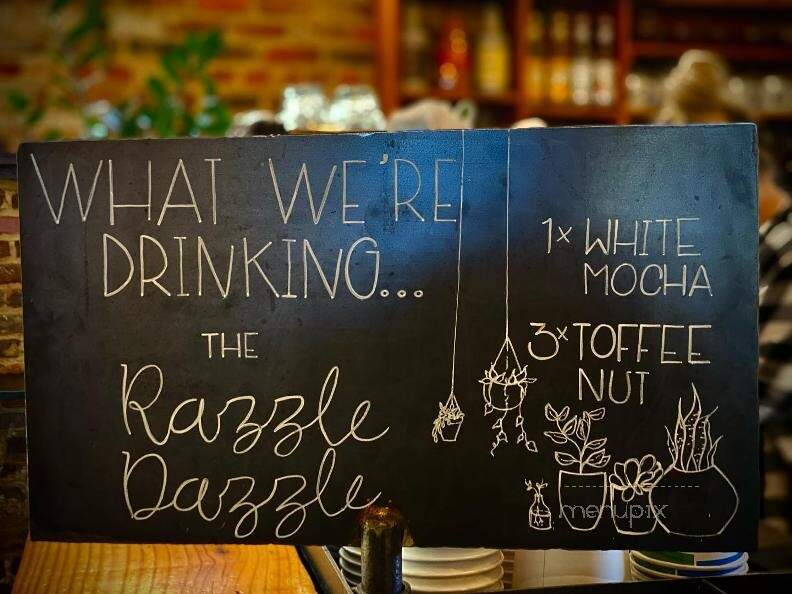 WHAT WE'RE
DRINKING...
THE
Razzle
Dazzle
1x WHITE
MOCHA
3x TOFFEE
NUT
menupix